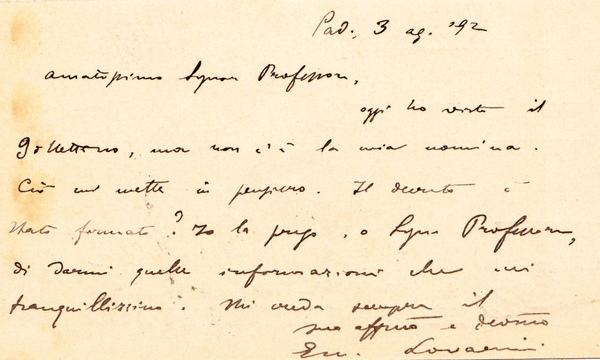 Pad., 3 ag. '92
amatissimo Signor Professore,
oggi ho visto il
Bollettino, ma non c'è la mia nomina.
Ciò mi mette in pensiero. Il decreto è
stato firmato? Io la prego, o Signor Professore,
di darmi quelle informazioni che mi
tranquillizzino. Mi creda sempre il
suo affmo e devotmo
Em. Lovarini